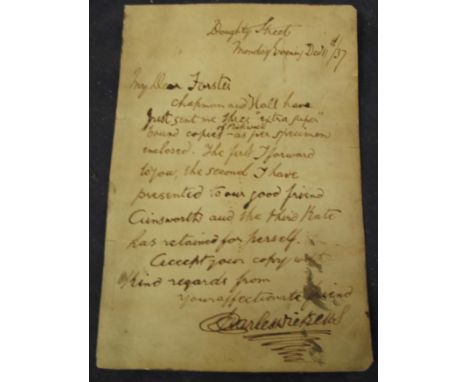 Doughty Street
Monday Evening Decr 11th/37
My Dear Forster
Chapman and Hall have
just sent me three "extra super"
bound copies of Pickwick - as per specimen
enclosed. The first I forward
to you, the second I have
presented to our good friend
Ainsworth and the third Kate
has retained for herself.
Accept your copy with
kind regards from
Your affectionate friend
Charles Dickens